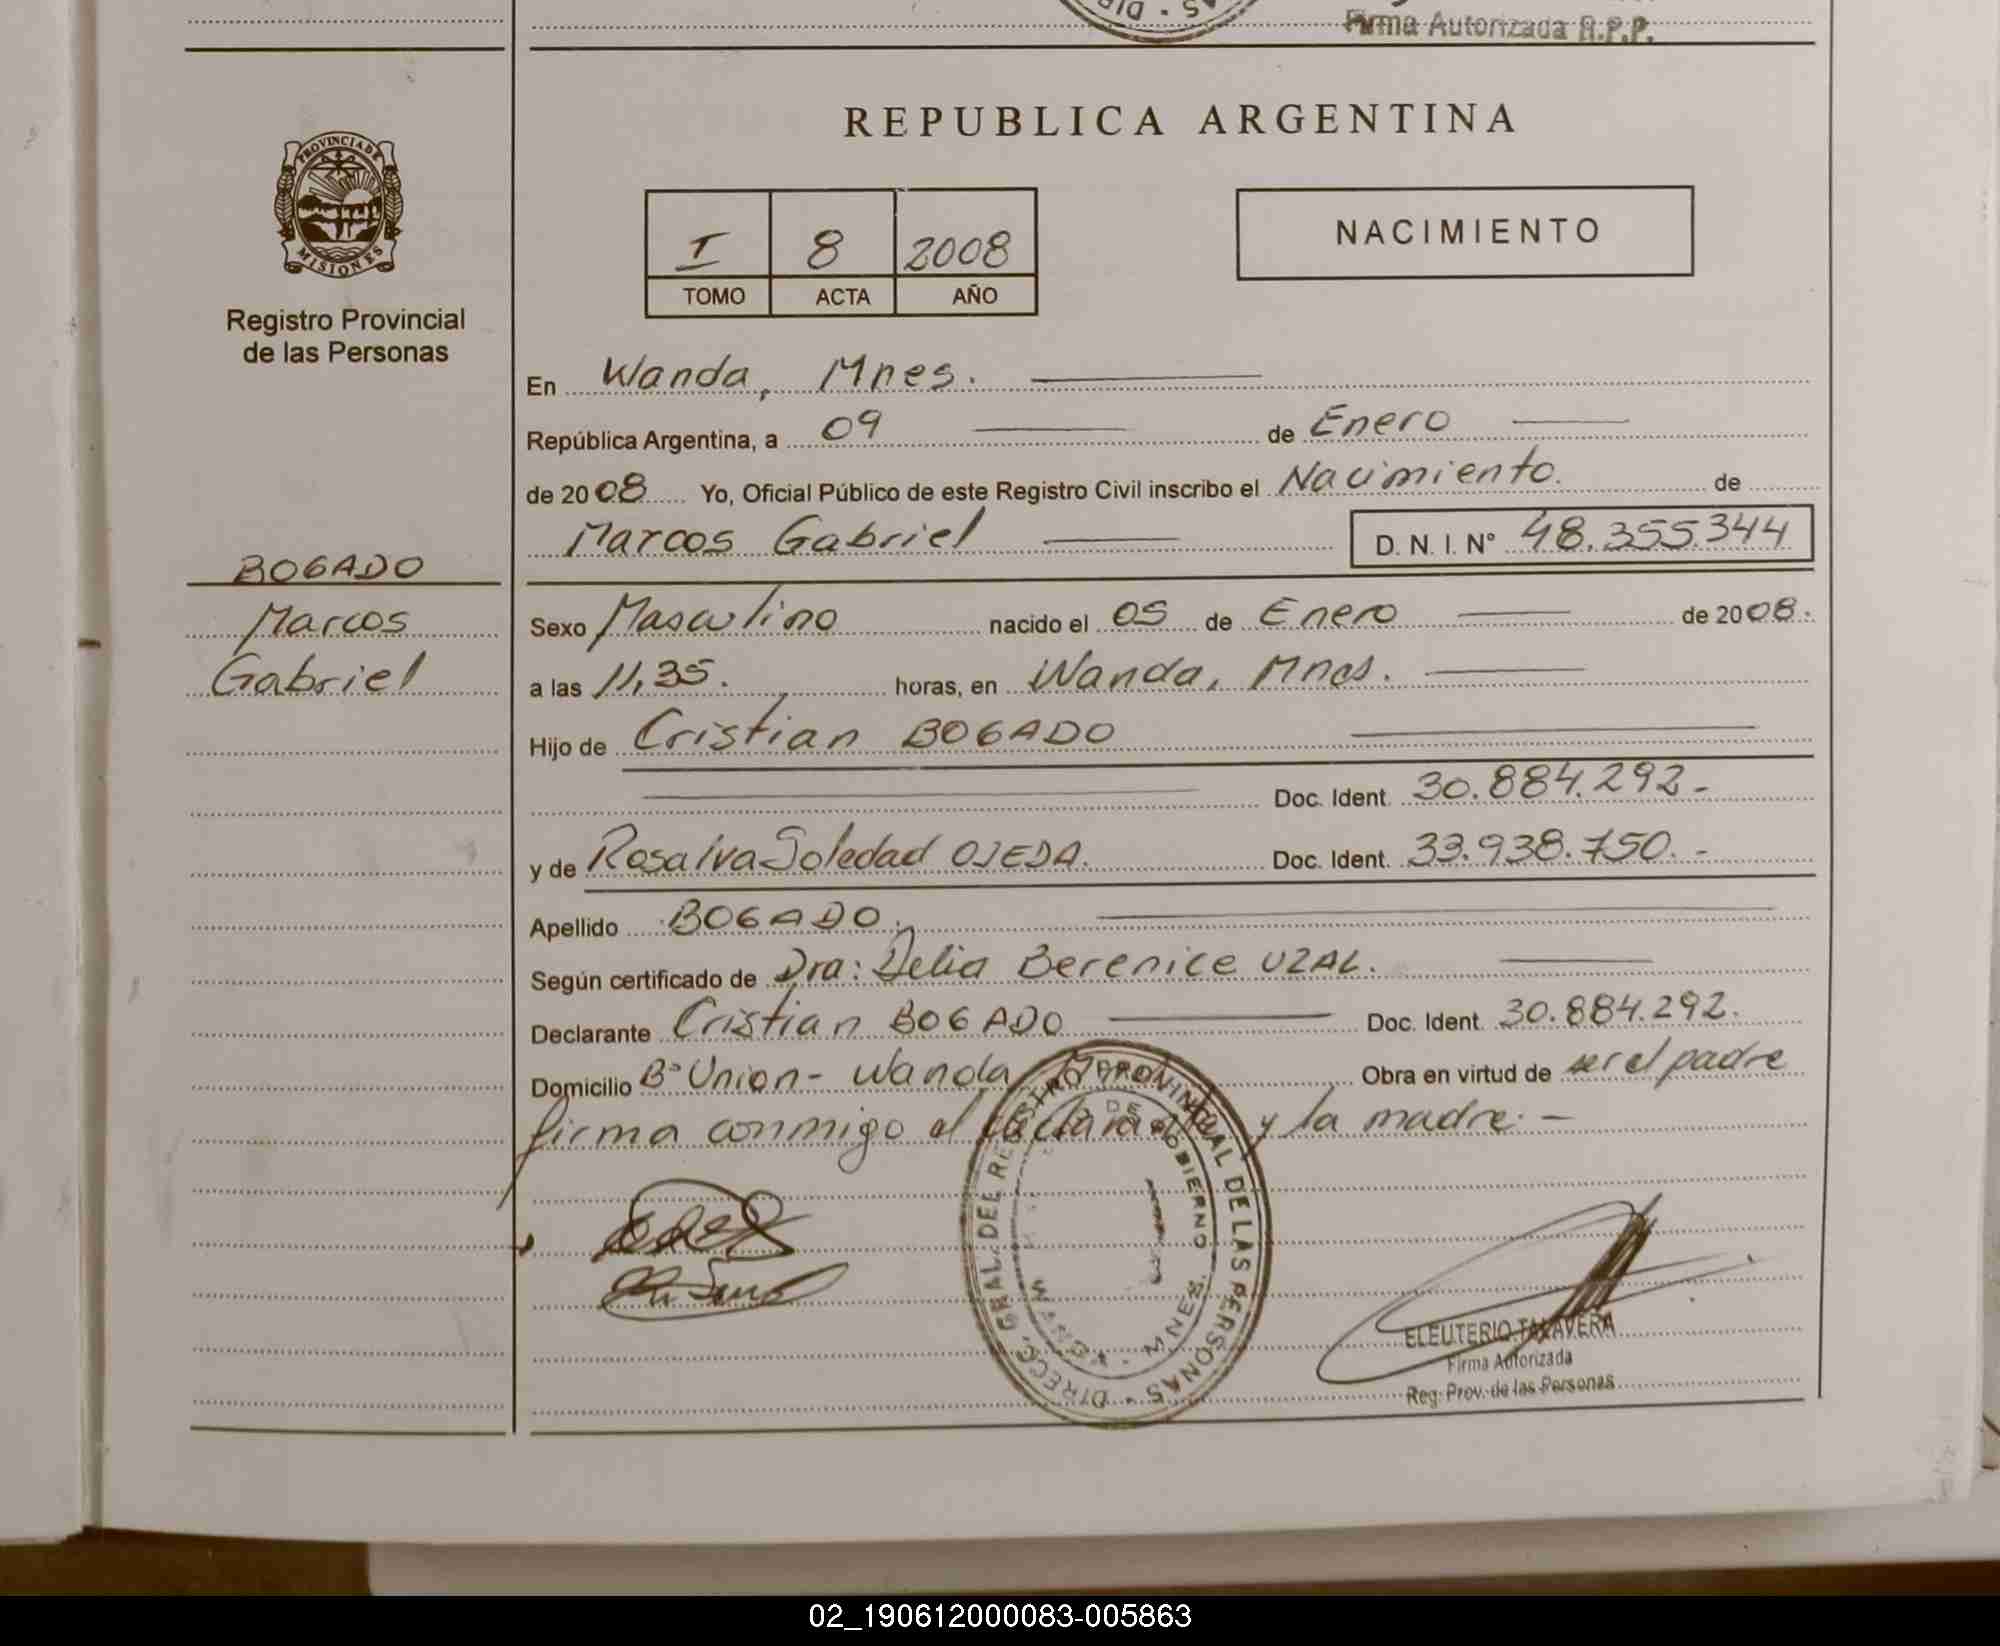 Firma Autorizada R.P.P.
REPUBLICA ARGENTINA
PROVINCIA DE
MISIONES
Registro Provincial
de las Personas
I 8 2008
TOMO ACTA AÑO
NACIMIENTO
En Wanda, Mnes.
República Argentina, a 09 de Enero
de 2008 Yo, Oficial Público de este Registro Civil inscribo el Nacimiento. de
Marcos Gabriel D. N. I. N° 48.355.344
BOGADO
Marcos
Gabriel
Sexo Masculino nacido el 05 de Enero de 2008.
a las 11,35. horas, en Wanda, Mnes.
Hijo de Cristian BOGADO
Doc. Ident. 30.884.292.-
y de Rosalva Soledad OJEDA. Doc. Ident. 33.938.750.-
Apellido BOGADO.
Según certificado de Dra: Delia Berenice UZAL.
Declarante Cristian BOGADO Doc. Ident. 30.884.292.
Domicilio B° Union - Wanda, Obra en virtud de ser el padre
firma conmigo el declarante y la madre.-
DIRECC. GRAL. DEL REGISTRO PROVINCIAL DE LAS PERSONAS
GOBIERNO
WANDA - MNES.
ELEUTERIO TALAVERA
Firma Autorizada
Reg. Prov. de las Personas
02_190612000083-005863